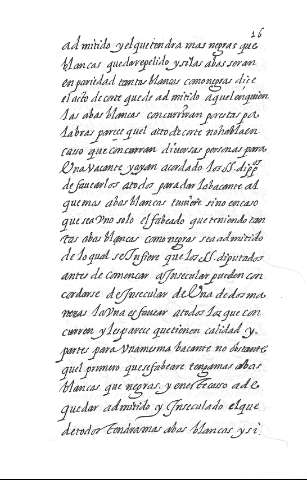 26
admitido y el que tendra mas negras que
blancas quede repelido y si las abas seran
en paridad tantas blancas como negras dize
el acto de corte quede admitido aquel en quien
las abas blancas concurriran por estas pa
labras parece quel acto de corte no habla en
caso que concurran diuersas personas para
Una vacante y ayan acordado los SS. dipp.os
de fauearlos a todos para dar la bacante al
que mas abas blancas tuuiere sino en caso
que sea Uno solo el fabeado que teniendo tan
tas abas blancas como negras sea admitido
de lo qual se Infiere que los SS. diputados
antes de comencar a Insecular pueden con
cordarse de Insecular de Una de dos ma
neras la Una es fauear a todos los que con
curren y les parece que tienen calidad y
partes para Una mesma bacante no obstante
quel primero que se fabeare tenga mas abas
blancas que negras. y en este caso ade
quedar admitido y Inseculado el que
de todos tendra mas abas blancas y si